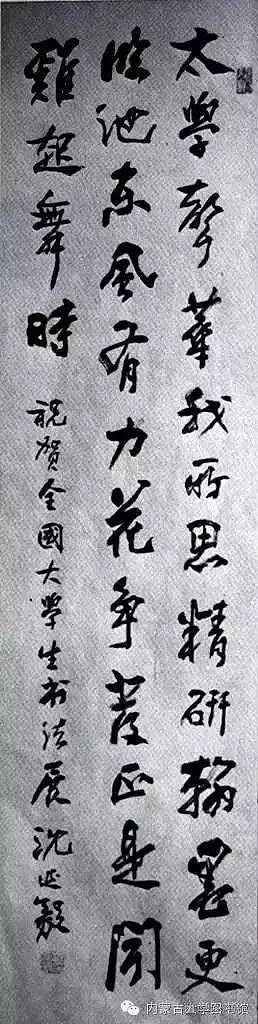 太學聲華我所思精研翰墨更
臨池東风有力花争发正是闻
雞起舞時
祝贺全國大學生书法展 沈延毅
内蒙古大学图书馆